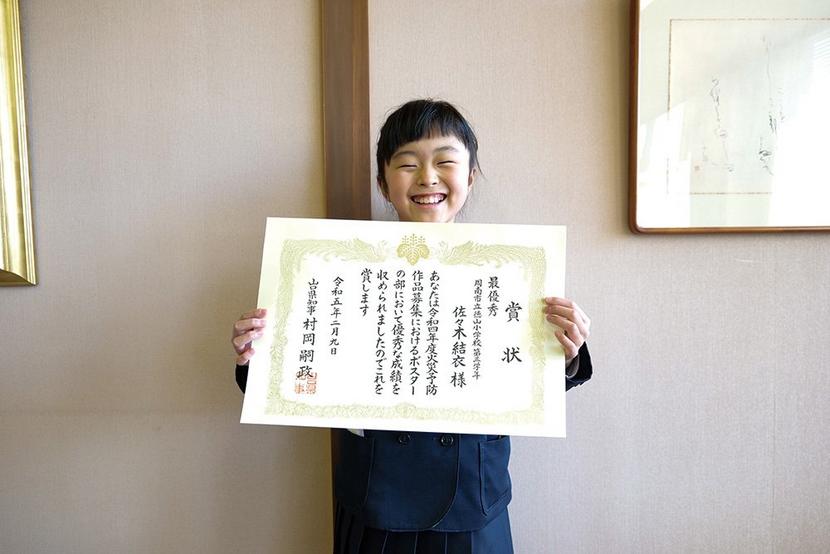 賞状
最優秀
周南市立徳山小学校 第三学年
佐々木結衣 様
あなたは令和四年度火災予防
作品募集におけるポスター
の部において優秀な成績を
収められましたのでこれを
賞します
令和五年二月九日
山口県知事 村岡嗣政